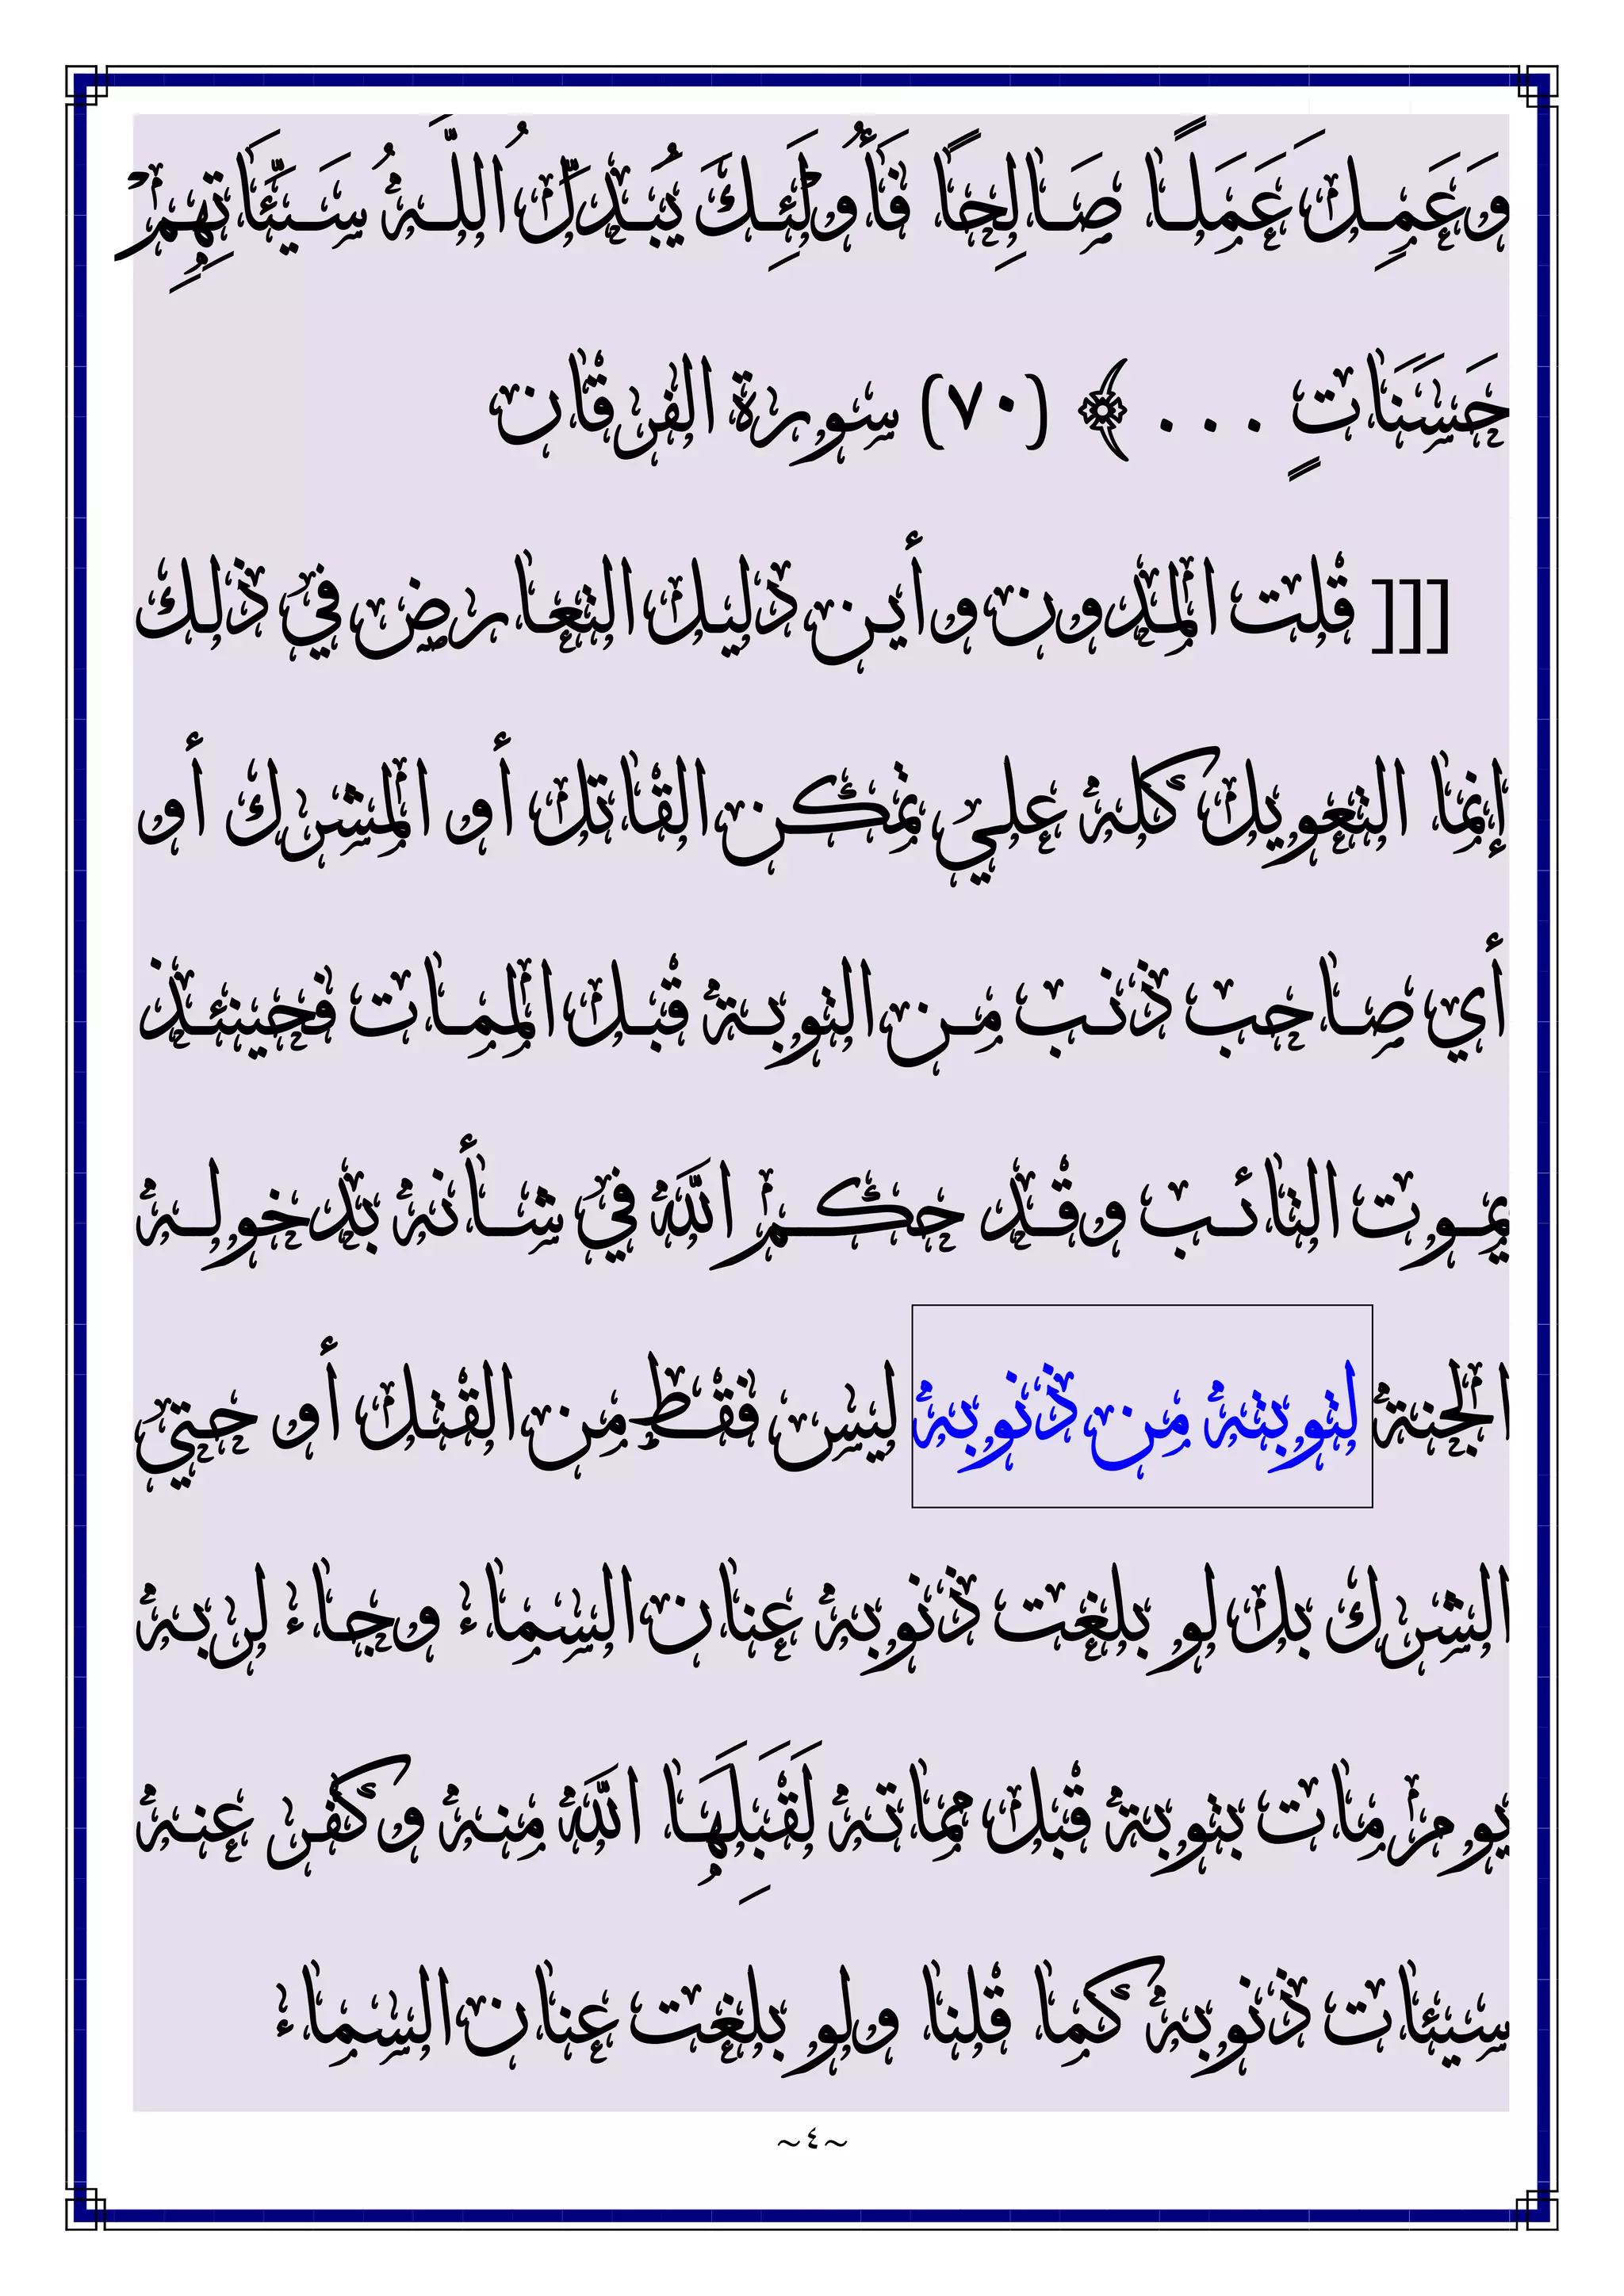 وَعَمِلَ عَمَلًا صَالِحًا فَأُولَئِكَ يُبَدِّلُ اللَّهُ سَيِّئَاتِهِمْ
حَسَنَاتٍ . . . ﴾ (٧٠) سورة الفرقان
[[[ قلت المدون وأين دليل التعارض في ذلك
إنما التعويل كله علي تمكن القاتل أو المشرك أو
أي صاحب ذنب من التوبة قبل الممات فحينئذ
يموت التائب وقد حكم الله في شأنه بدخوله
الجنة لتوبته من ذنوبه ليس فقط من القتل أو حتي
الشرك بل لو بلغت ذنوبه عنان السماء وجاء لربه
يوم مات بتوبة قبل مماته لَقَبِلَهَا الله منه وكفر عنه
سيئات ذنوبه كما قلنا ولو بلغت عنان السماء
~٤~